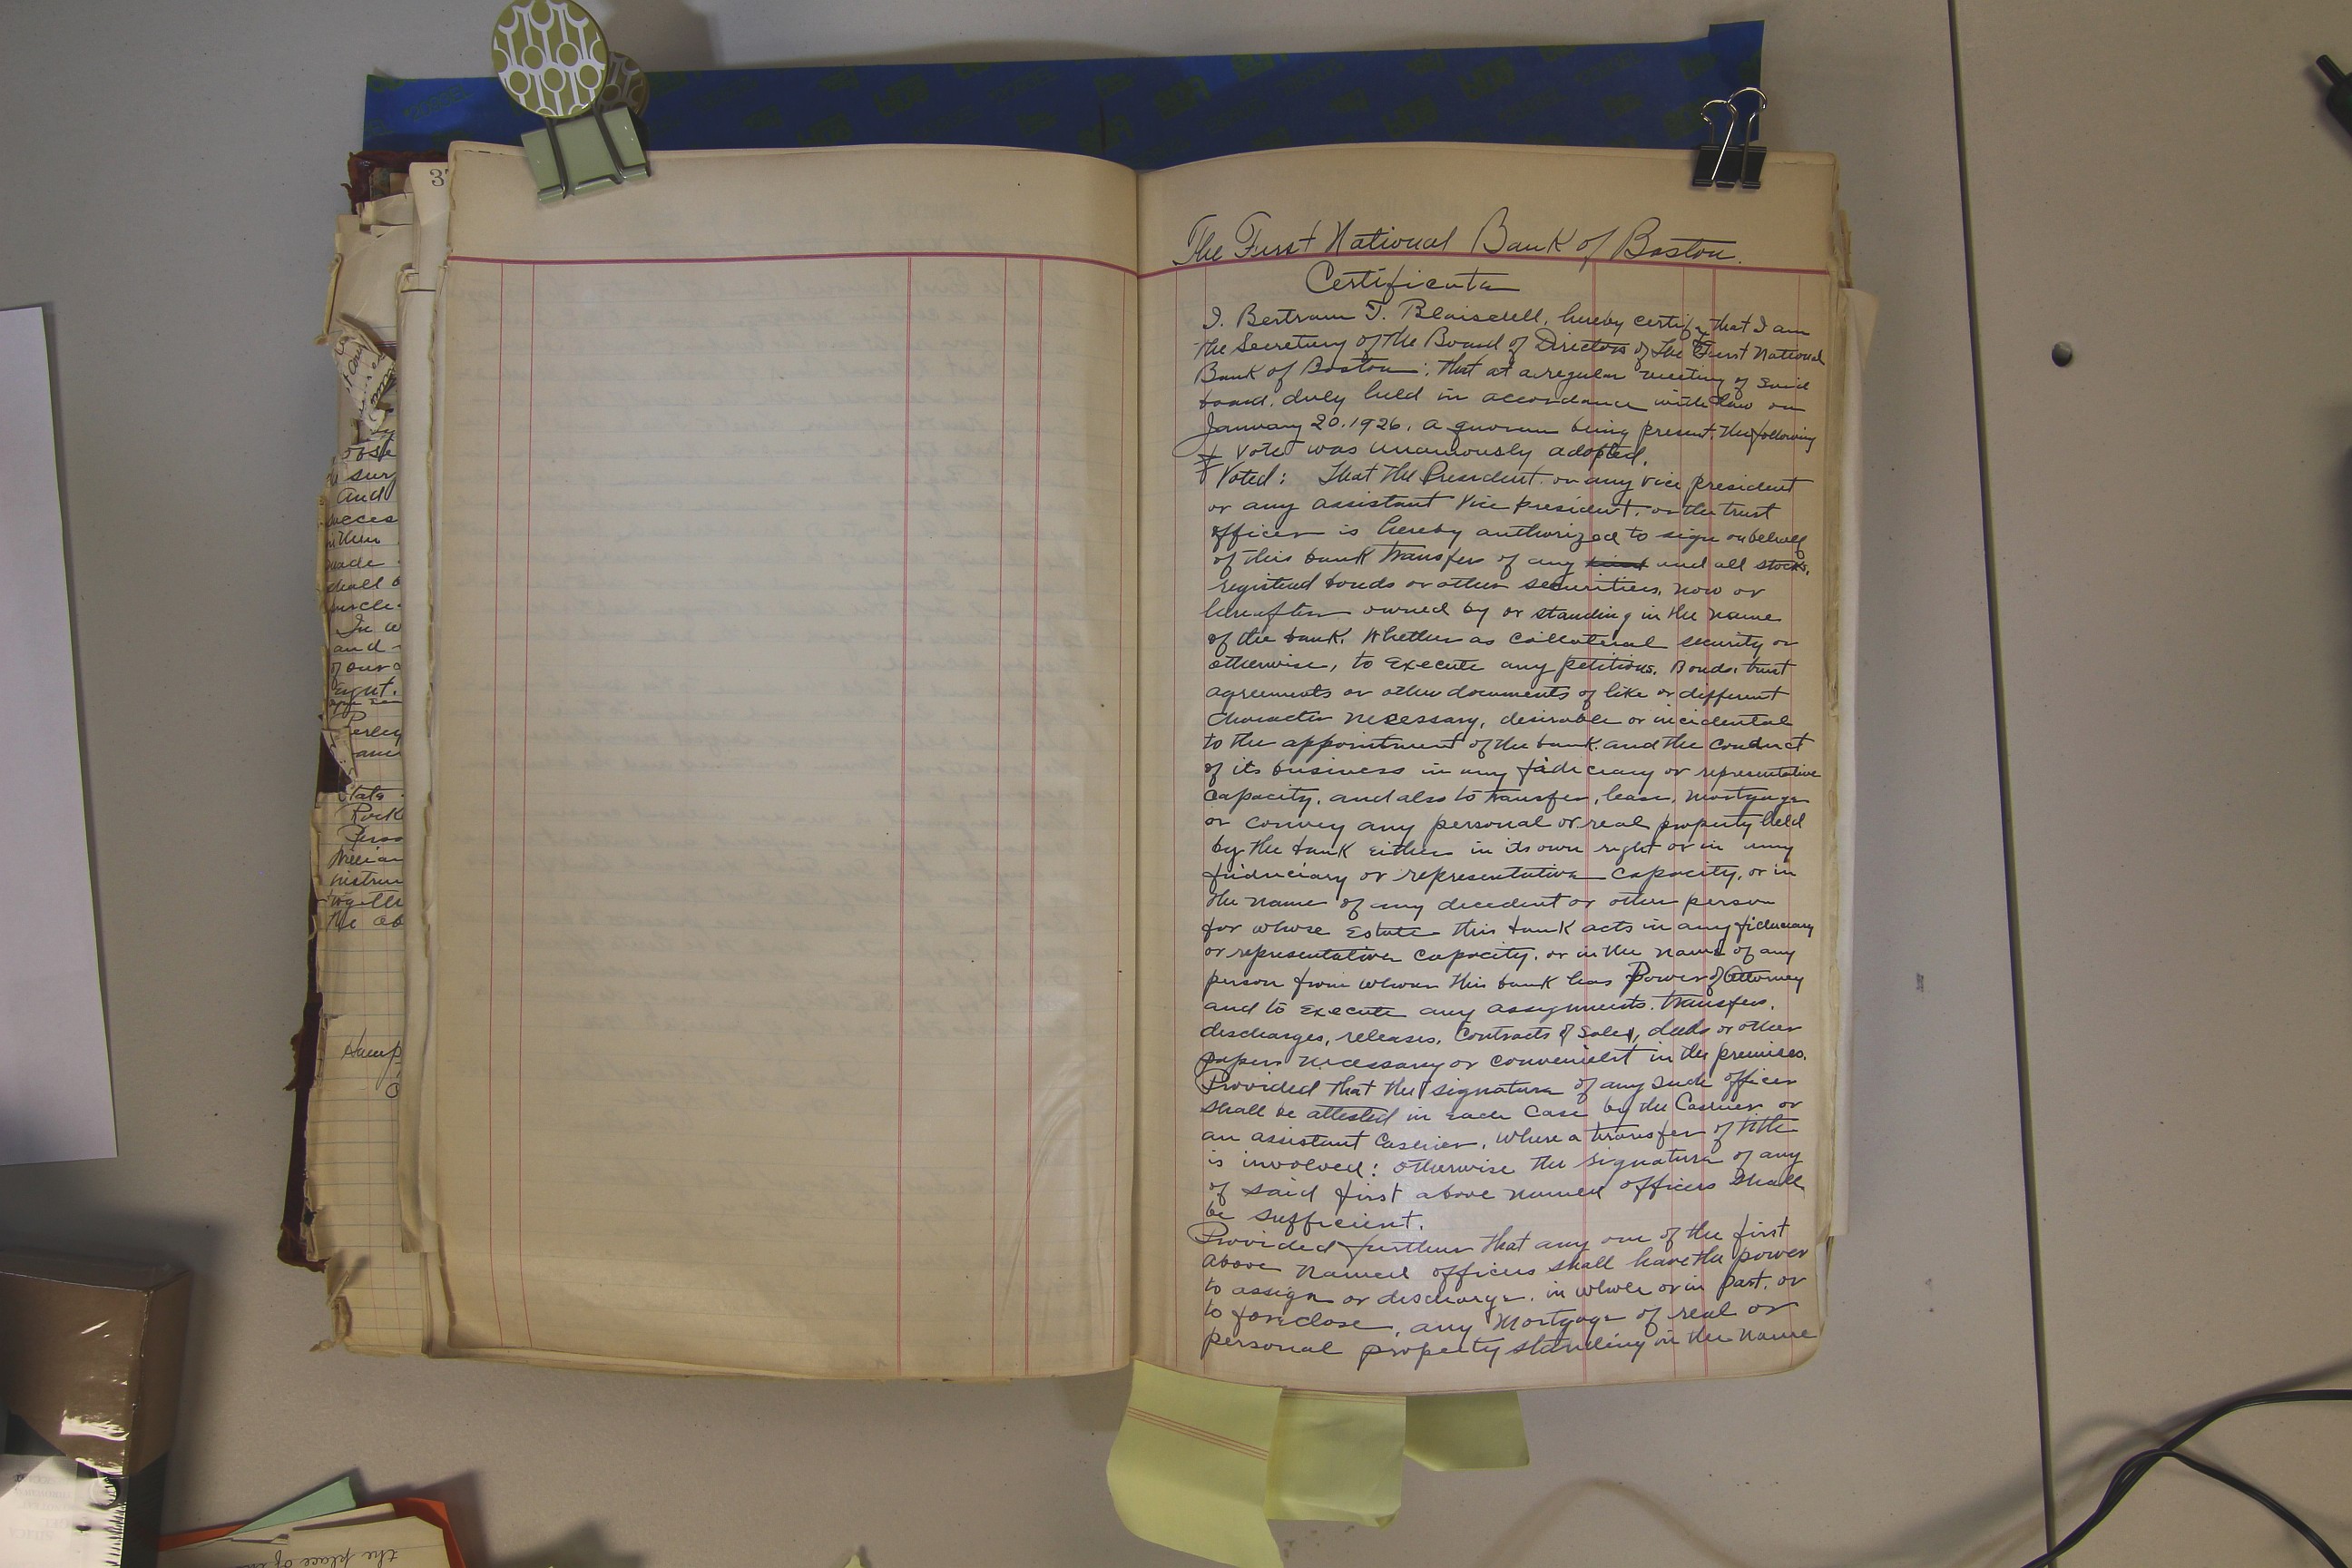 3
The First National Bank of Boston.
Certificate
I. Bertram T. Blaisdell, hereby certify that I am
the Secretary of the Board of Directors of the First National
Bank of Boston: that at a regular meeting of said
board, duly held in accordance with law on
January 20. 1926. a quorum being present, the following
vote was unanimously adopted.
Voted: That the President or any vice president
or any assistant vice president, or the trust
officer is hereby authorized to sign on behalf
of this bank transfer of any and all stocks,
registered bonds or other securities, now or
hereafter owned by or standing in the name
of the bank. Whether as collateral security or
otherwise, to execute any petitions, Bonds, trust
agreements or other documents of like or different
character necessary, desirable or incidental
to the appointment of the bank and the conduct
of its business in any fiduciary or representative
capacity, and also to transfer, lease, mortgage
or convey any personal or real property held
by the bank either in its own right or in any
fiduciary or representative capacity, or in
the name of any decedent or other person
for whose Estate this bank acts in any fiduciary
or representative capacity, or in the name of any
person from whom this bank has Power of Attorney
and to execute any assignments, transfers,
discharges, releases, Contracts of Sales, deeds or other
papers necessary or convenient in the premises.
Provided that the signature of any such officer
shall be attested in each case by the Cashier or
an assistant Cashier, where a transfer of title
is involved: otherwise the signature of any
of said first above named officers shall
be sufficient.
Provided further that any one of the first
above named officers shall have the power
to assign or discharge, in whole or in part, or
to foreclose, any Mortgage of real or
personal property standing in the name
the place of